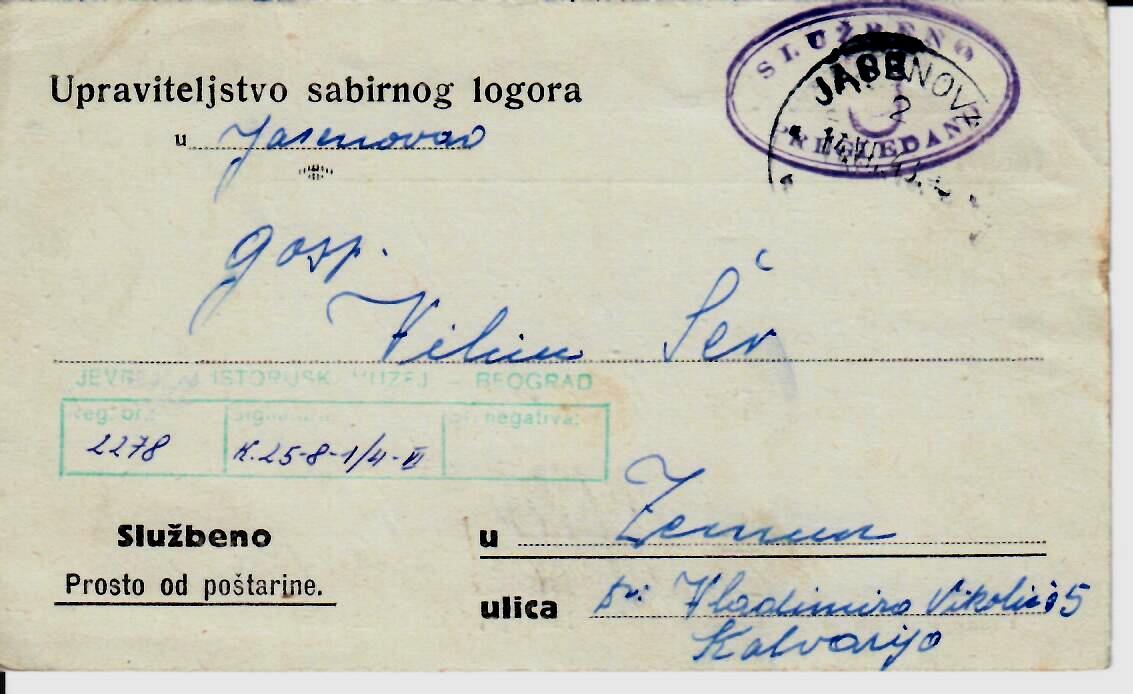 SLUŽBENO
PREGLEDANO
JASENOVAC
2
14.VI.43.
Upraviteljstvo sabirnog logora
u Jasenovac
gosp.
Vilim Šev
JEVREJSKI ISTORIJSKI MUZEJ – BEOGRAD
Reg. br.: Signatura: br. negativa:
2278 K.25-8-1/4-VI
Službeno
Prosto od poštarine.
u Zemun
ulica Dr: Vladimira Nikolića 5
Kalvarija